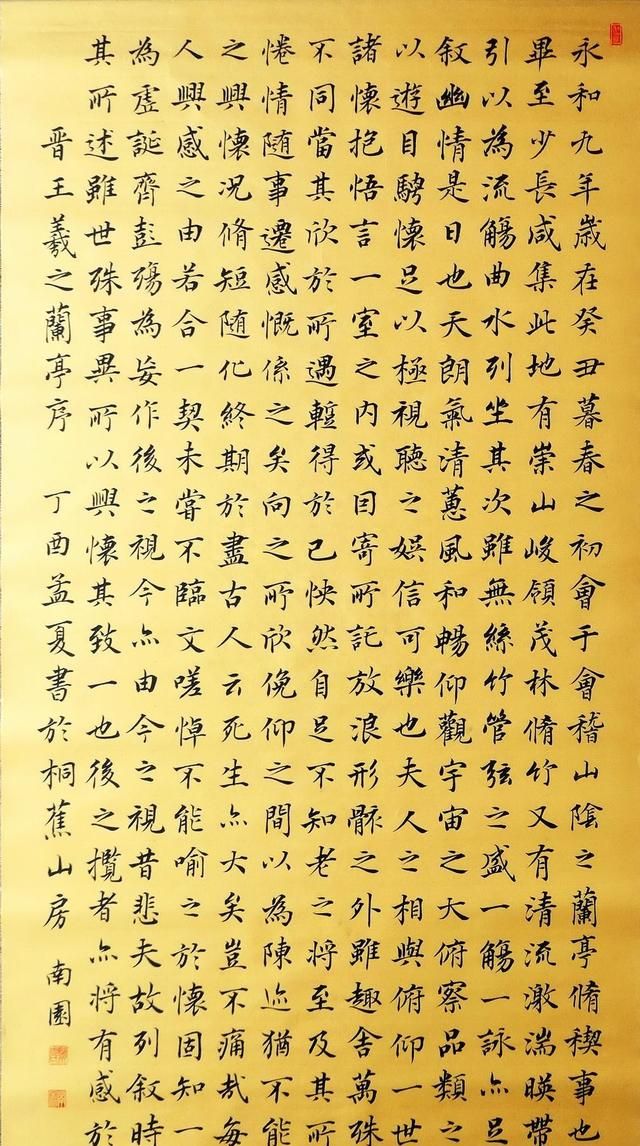 永和九年歲在癸丑暮春之初會于會稽山陰之蘭亭脩稧事也
畢至少長咸集此地有崇山峻領茂林脩竹又有清流激湍暎帶
引以為流觴曲水列坐其次雖無絲竹管弦之盛一觴一詠亦足
叙幽情是日也天朗氣清蕙風和暢仰觀宇宙之大俯察品類之
以遊目騁懷足以極視聽之娛信可樂也夫人之相與俯仰一世
諸懷抱悟言一室之內或因寄所託放浪形骸之外雖趣舍萬殊
不同當其欣於所遇暫得於己怏然自足不知老之將至及其所
惓情随事遷感慨係之矣向之所欣俛仰之間以為陳迹猶不能
之興懷況脩短随化終期於盡古人云死生亦大矣豈不痛哉每
人興感之由若合一契未嘗不臨文嗟悼不能喻之於懷固知一
為虛誕齊彭殤為妄作後之視今亦由今之視昔悲夫故列叙時
其所述雖世殊事異所以興懷其致一也後之攬者亦將有感於
晋王羲之蘭亭序 丁酉孟夏書於桐蕉山房 南園